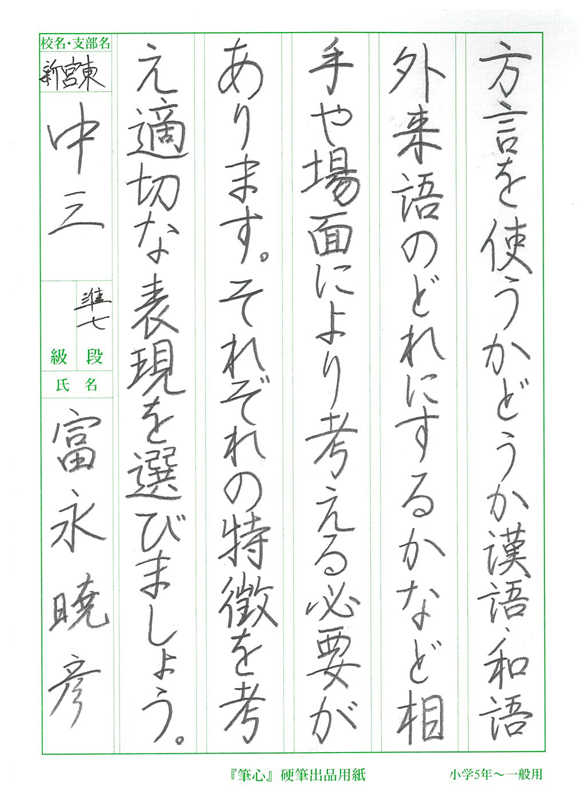 方言を使うかどうか漢語・和語
外来語のどれにするかなど相
手や場面により考える必要が
あります。それぞれの特徴を考
え適切な表現を選びましょう。
校名・支部名
新宮東
中三
準七
段
級
氏名
富永暁彦
『筆心』硬筆出品用紙
小学5年〜一般用